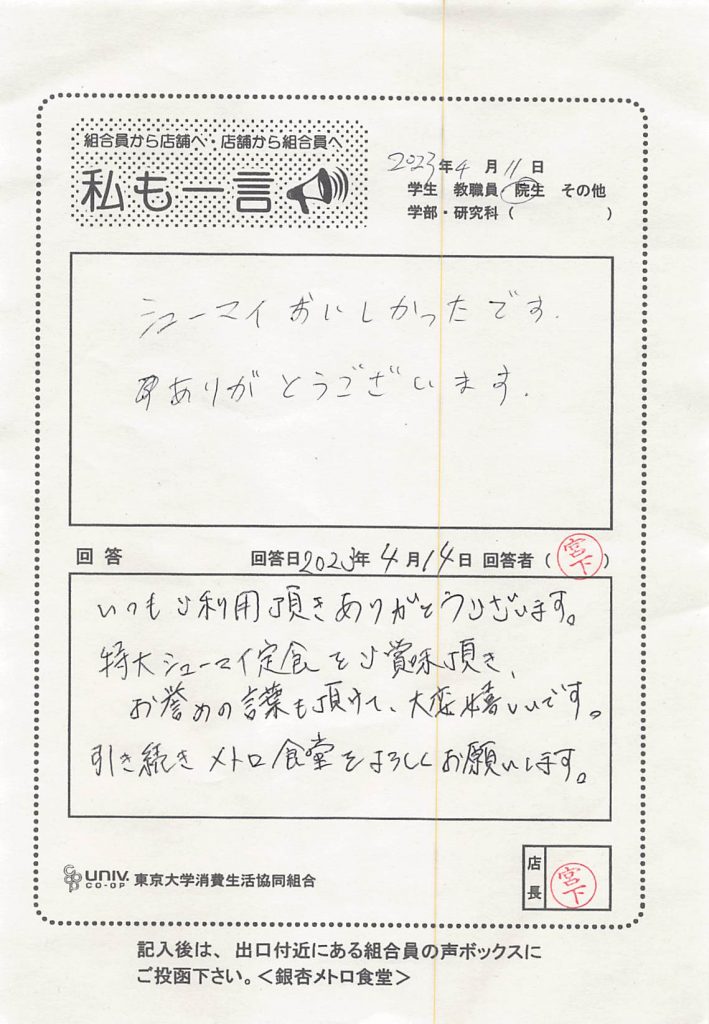 組合員から店舗へ・店舗から組合員へ
私も一言
2023年4月11日
学生 教職員 院生 その他
学部・研究科（　　　）
シューマイおいしかったです.
ありがとうございます.
回答 回答日2023年4月14日 回答者（宮下）
いつもご利用頂きありがとうございます。
特大シューマイ定食をご賞味頂き、
お誉めの言葉も頂けて、大変嬉しいです。
引き続きメトロ食堂をよろしくお願いします。
UNIV. CO-OP 東京大学消費生活協同組合
店長 宮下
記入後は、出口付近にある組合員の声ボックスに
ご投函下さい。＜銀杏メトロ食堂＞